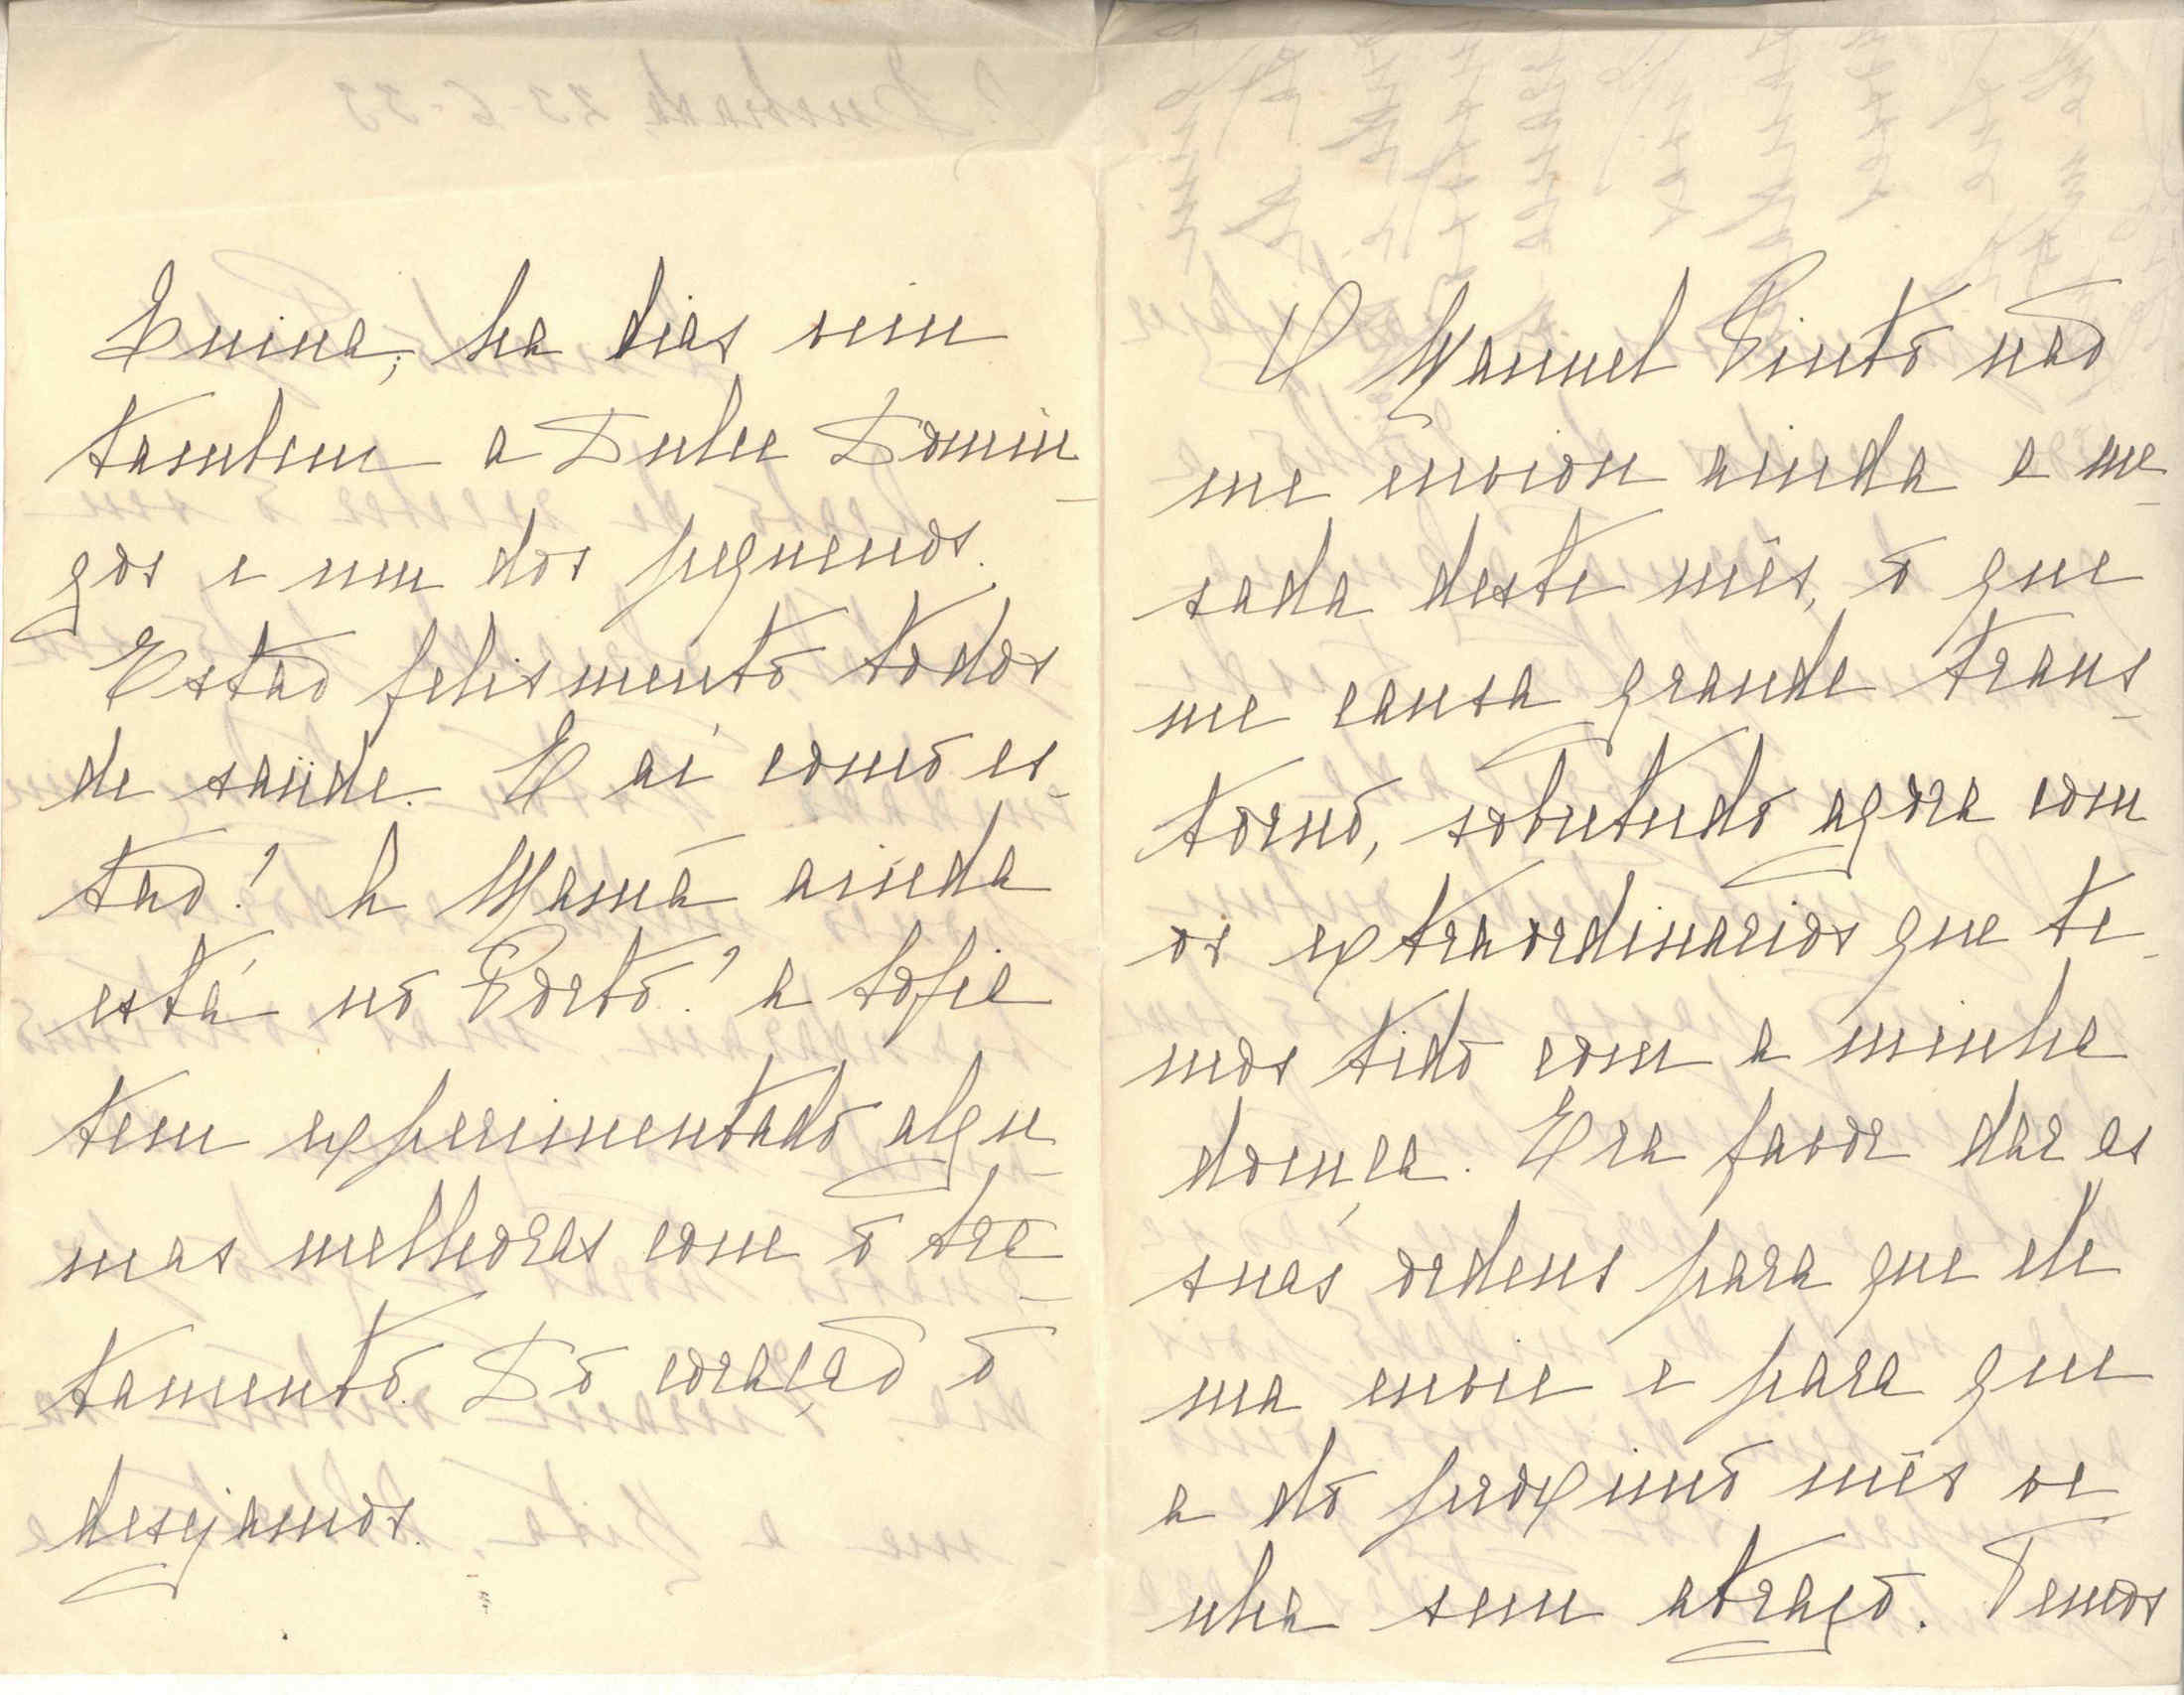 Enina, ha dias vem
tambem a Dulce Domin-
gos e um dos pequenos.
Estão felismentō todos
de saüde. E aí comō es-
tão? A Mamã ainda
está nō Portō? a Sofia
tem experimentadō algu-
mas melhoras com ō tra-
tamentō. Dō coração ō
desejamos.
O Manuel Pintō não
me enviou ainda a me-
sada deste mês, ō que
me causa grande trans-
tornō, sobretudō agora com
os extraordinarios que te-
mos tidō com a minha
doença. Era favor dar as
suas ordens para que ele
ma envie e para que
a dō proximō mês ve
nha sem atrazō. Temos